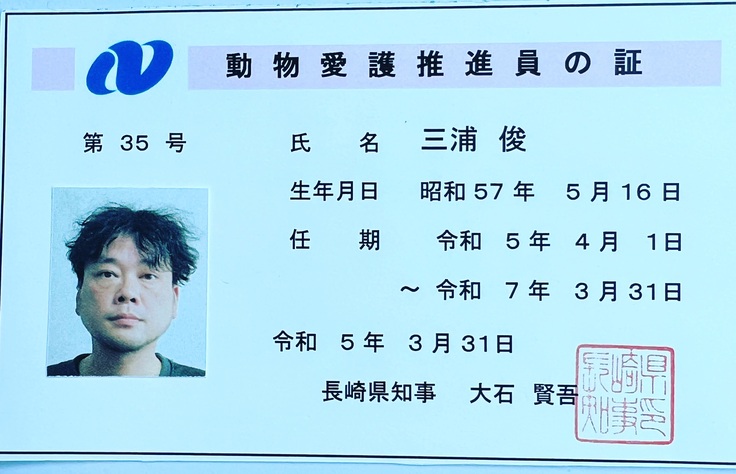 動物愛護推進員の証
第 35 号
氏 名 三浦 俊
生年月日 昭和57年 5月16日
任 期 令和 5年 4月 1日
～ 令和 7年 3月31日
令和 5年 3月31日
長崎県知事 大石 賢吾
長崎県知事印